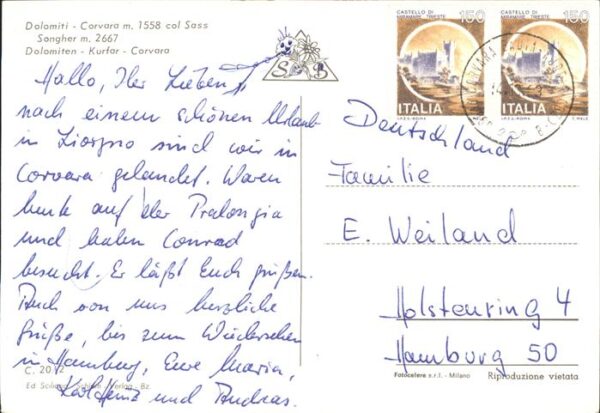 Dolomiti - Corvara m. 1558 col Sass
Songher m. 2667
Dolomiten - Kurfar - Corvara
Hallo, Ihr Lieben,
nach einem schönen Urlaub
in sind wir in
Corvara gelandet. Waren
heute auf der Pralongia
und haben Conrad
besucht. Er läßt Euch grüßen.
Auch von uns herzliche
Grüße, bis zum Wiedersehen
in Hamburg, Eure Maria,
Karl Heinz und Andreas.
C. 20
S B
CASTELLO DI
MIRAMARE. TRIESTE
150
ITALIA
I.P.Z.S.-ROMA
CASTELLO DI
MIRAMARE. TRIESTE
150
ITALIA
I.P.Z.S.-ROMA
Deutschland
Familie
E. Weiland
Holstenring 4
Hamburg 50
Fotocelere s.r.l. - Milano
Riproduzione vietata